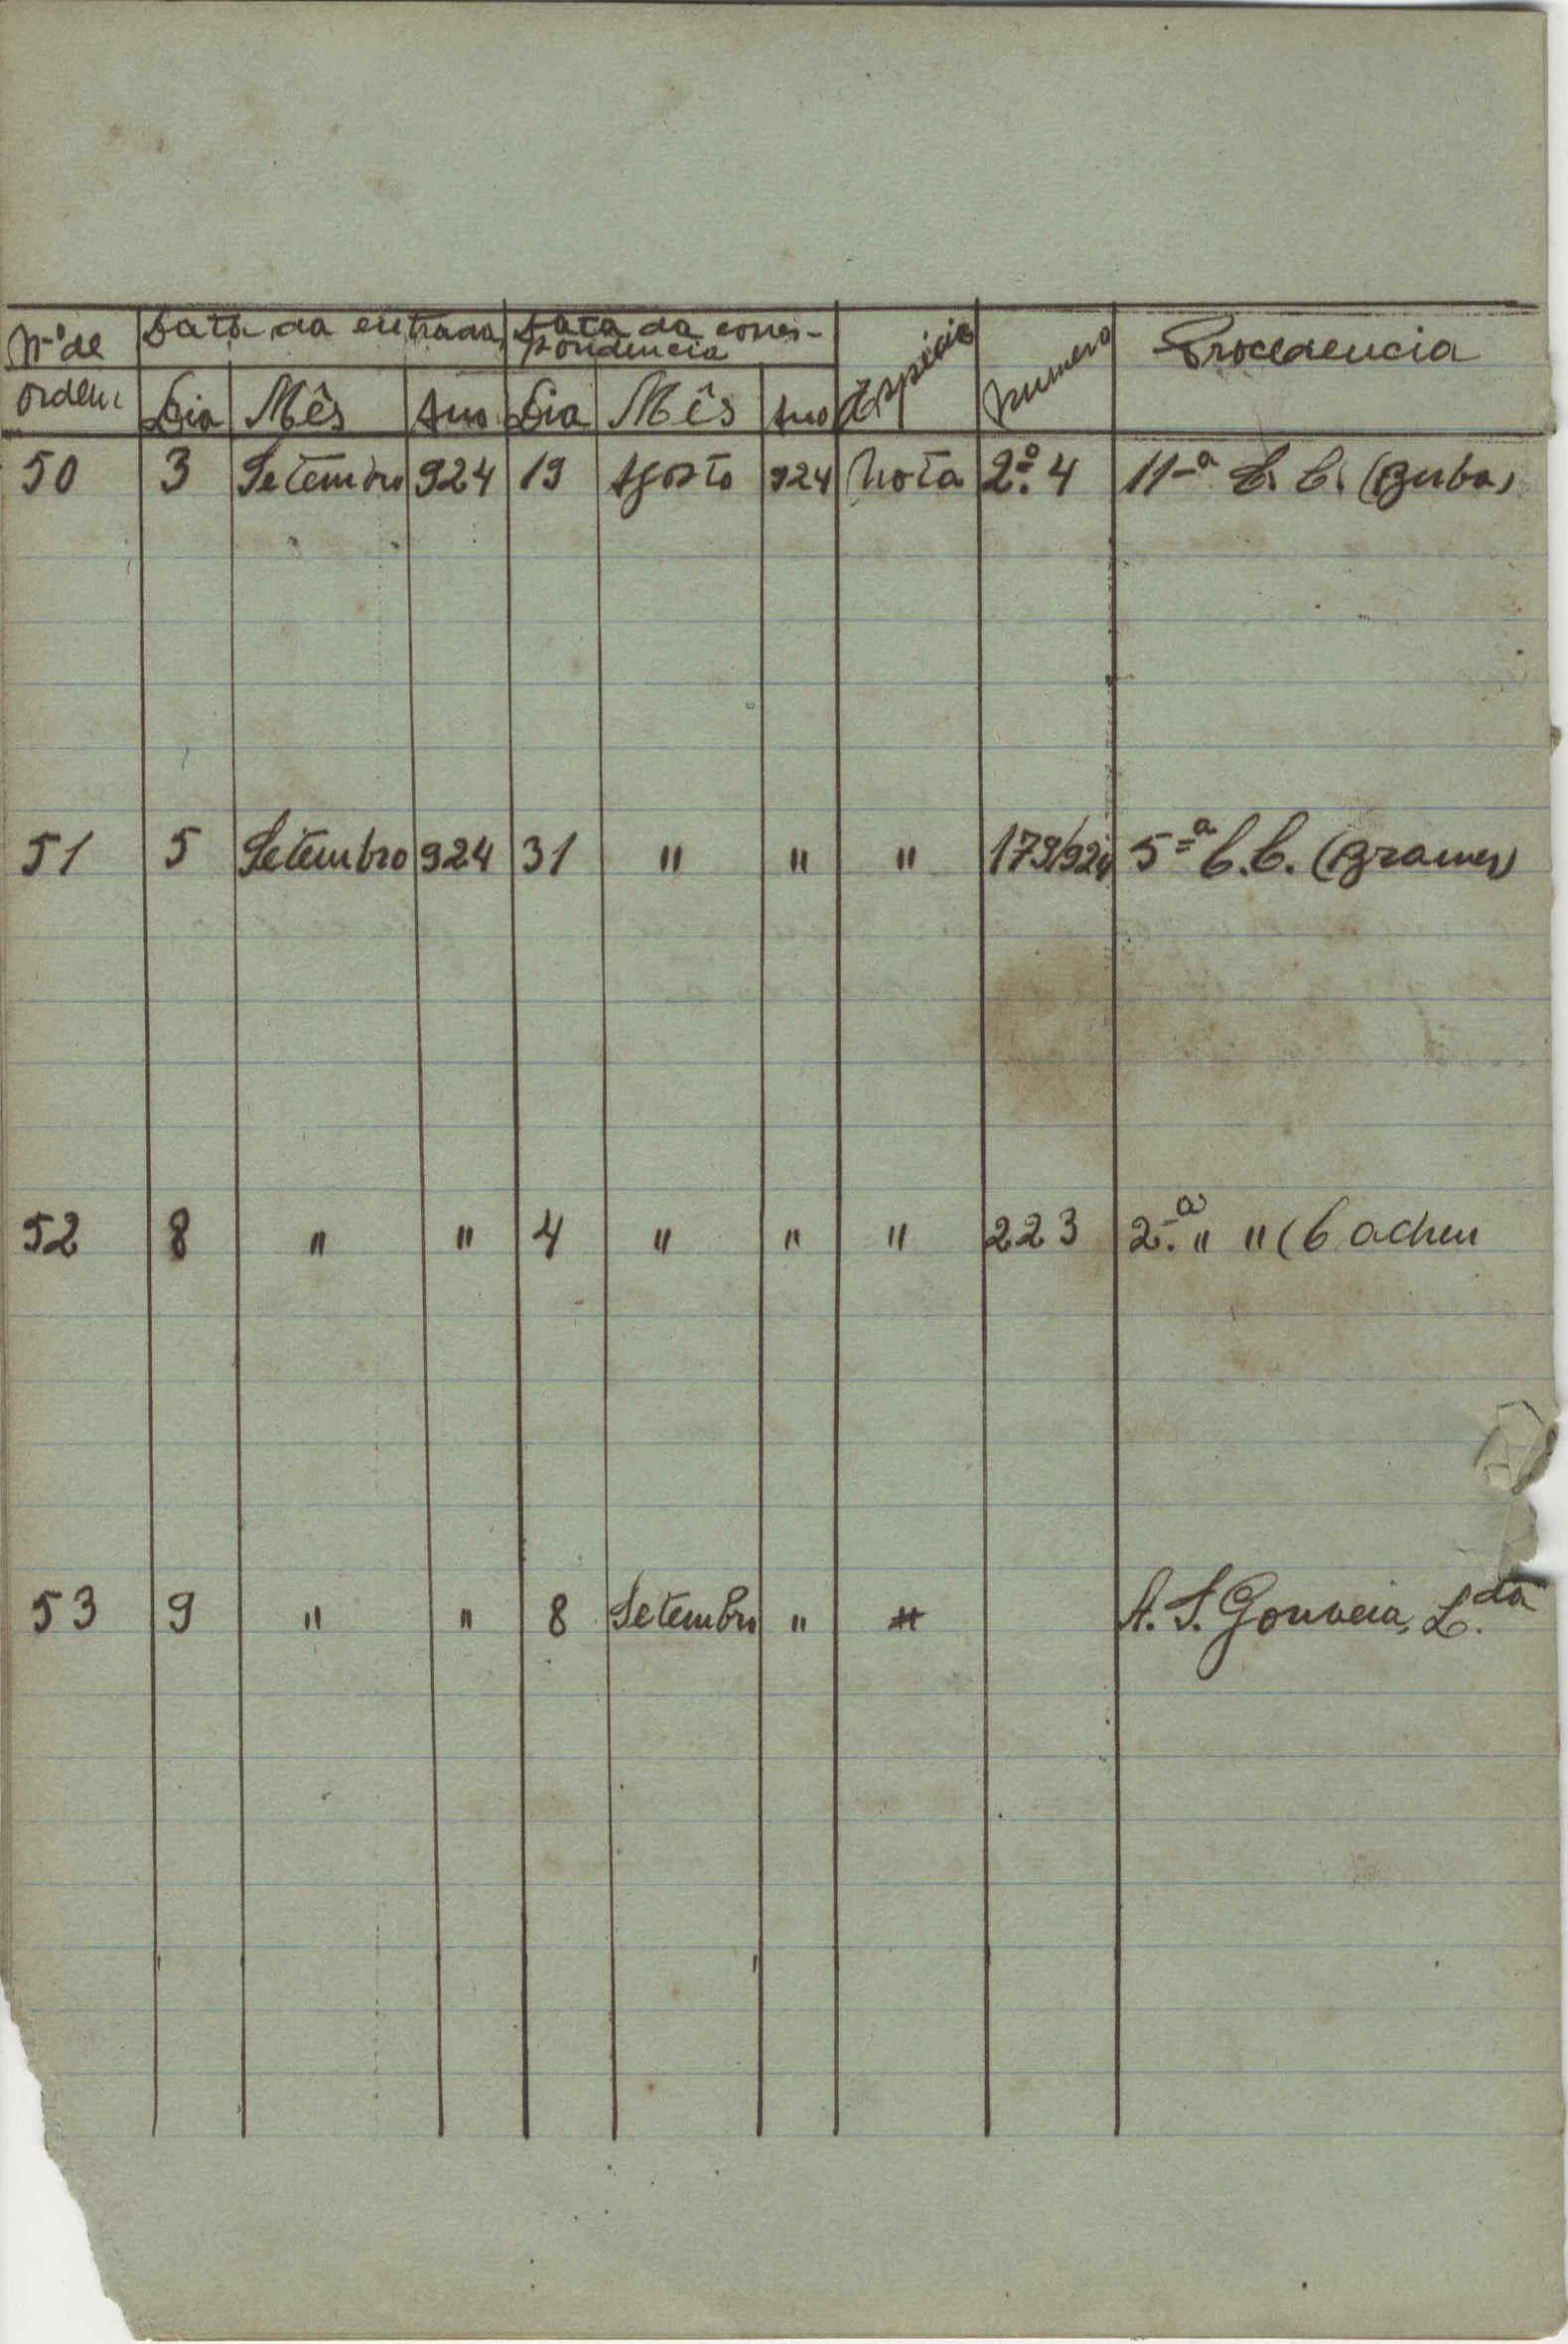 N.º de Data da entrada Data da corres-
pondencia Espécie Numero Procedencia
ordem Dia Mês Ano Dia Mês Ano
50 3 Setembro 924 19 Agosto 924 Nota 2.º 4 11-ª C. C. (Buba)
51 5 Setembro 924 31 " " " 179/924 5ª C. C. (Brames)
52 8 " " 4 " " " 223 2.ª " " (Cacheu
53 9 " " 8 Setembro " " A. S. Gouveia, L.da